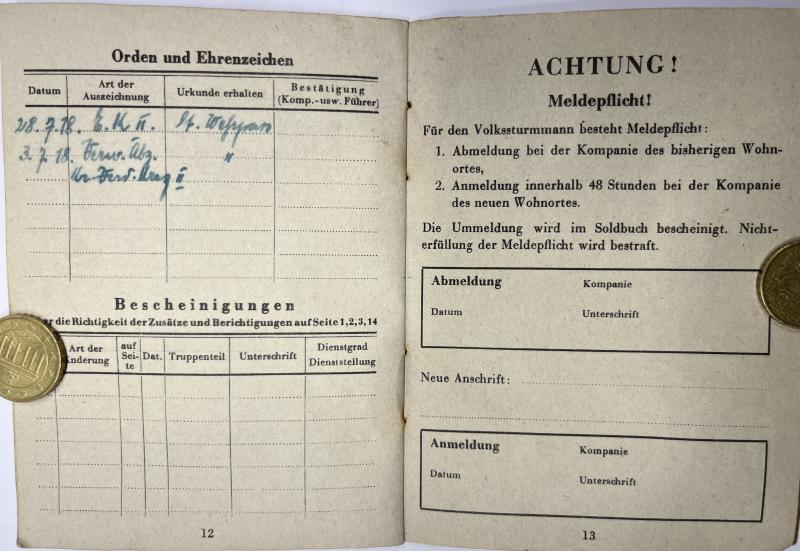 Orden und Ehrenzeichen
Datum
Art der Auszeichnung
Urkunde erhalten
Bestätigung (Komp.-usw. Führer)
28. 7. 18. E. K. II.
3. 7. 18. Verw. Abz. "
II
Bescheinigungen
die Richtigkeit der Zusätze und Berichtigungen auf Seite 1, 2, 3, 14
Art der
auf Seite
Dat.
Truppenteil
Unterschrift
Dienstgrad Dienststellung
12
ACHTUNG!
Meldepflicht!
Für den Volkssturmmann besteht Meldepflicht:
1. Abmeldung bei der Kompanie des bisherigen Wohn-
ortes,
2. Anmeldung innerhalb 48 Stunden bei der Kompanie
des neuen Wohnortes.
Die Ummeldung wird im Soldbuch bescheinigt. Nicht-
erfüllung der Meldepflicht wird bestraft.
Abmeldung Kompanie
Datum Unterschrift
Neue Anschrift:
Anmeldung Kompanie
Datum Unterschrift
13